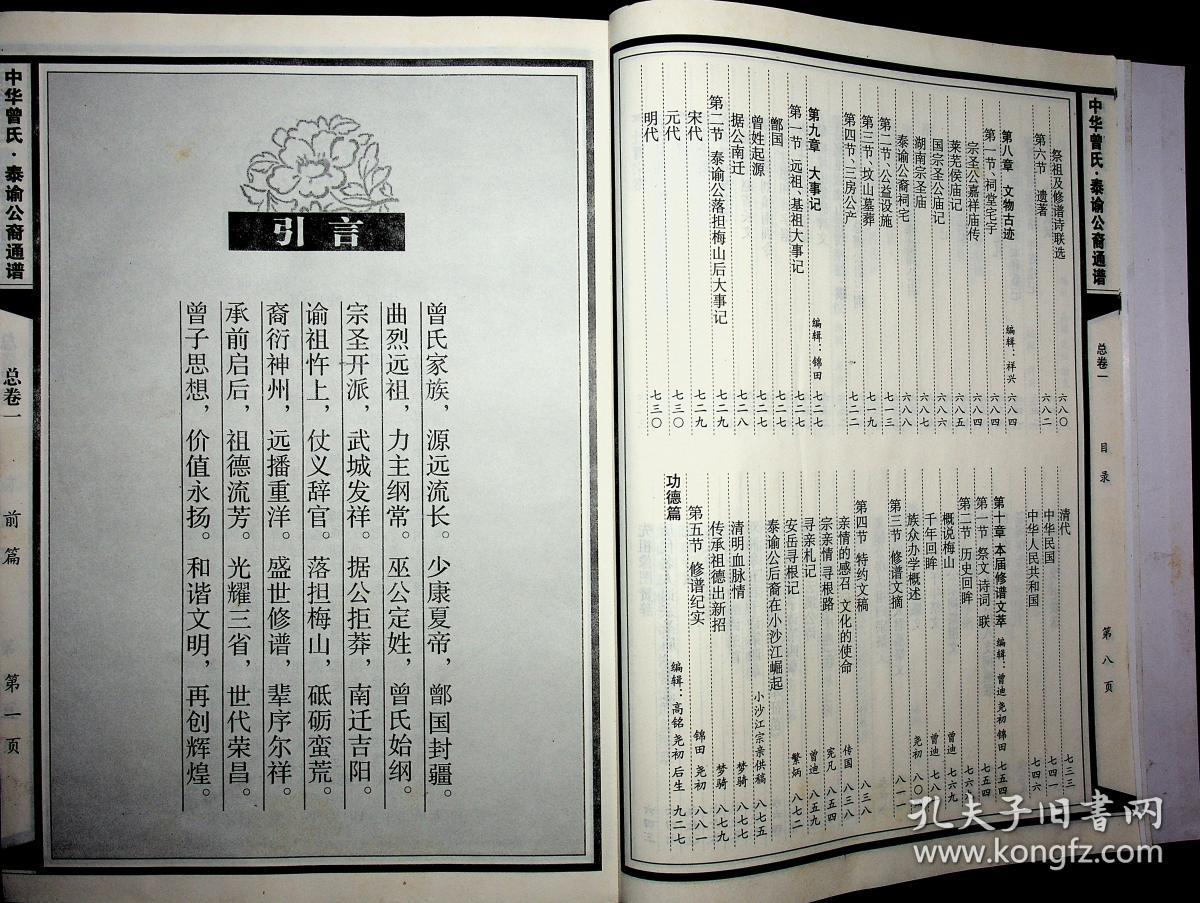 中华曾氏·泰谕公裔通谱
总卷一
目录
第八页
祭祖及修谱诗联选 六八〇
第六节 遗著 六八二
第八章 文物古迹 编辑：祥兴 六八四
第一节、祠堂宅宇 六八四
宗圣公嘉祥庙传 六八四
莱芜侯庙记 六八五
国宗圣公庙记 六八六
湖南宗圣庙 六八七
泰谕公裔祠宅 六八八
第二节、公益设施 七一三
第三节、坟山墓葬 七一九
第四节、三房公产 七二二
第九章 大事记 编辑：锦田 七二七
第一节 远祖、基祖大事记 七二七
鄫国 七二七
曾姓起源 七二七
据公南迁 七二八
第二节 泰谕公落担梅山后大事记 七二九
宋代 七二九
元代 七三〇
明代 七三〇
清代 七三三
中华民国 七四一
中华人民共和国 七四六
第十章 本届修谱文萃 编辑：曾迪 尧初 锦田 七五四
第一节 祭文 诗词 联 七五四
第二节 历史回眸 七六九
概说梅山 曾迪 七六九
千年回眸 曾迪
族众办学概述 尧初 八〇
第三节 修谱文摘 八一一
第四节 特约文稿 八三八
亲情的感召 文化的使命 传国 八三八
宗亲情 寻根路 宪凡 八五四
寻亲札记 曾迪 八五九
安岳寻根记 繁炳 八七二
泰谕公后裔在小沙江崛起 小沙江宗亲供稿 八七五
清明血脉情 梦骑 八七七
传承祖德出新招 梦骑 八七九
第五节 修谱纪实 锦田 尧初 八八一
功德篇 编辑：高铭 尧初 后生 九二七
引言
曾氏家族，源远流长。少康夏帝，鄫国封疆。
曲烈远祖，力主纲常。巫公定姓，曾氏始纲。
宗圣开派，武城发祥。据公拒莽，南迁吉阳。
谕祖忤上，仗义辞官。落担梅山，砥砺蛮荒。
裔衍神州，远播重洋。盛世修谱，辈序尔祥。
承前启后，祖德流芳。光耀三省，世代荣昌。
曾子思想，价值永扬。和谐文明，再创辉煌。
中华曾氏·泰谕公裔通谱
总卷一
前篇
第一页
孔夫子旧书网
www.kongfz.com